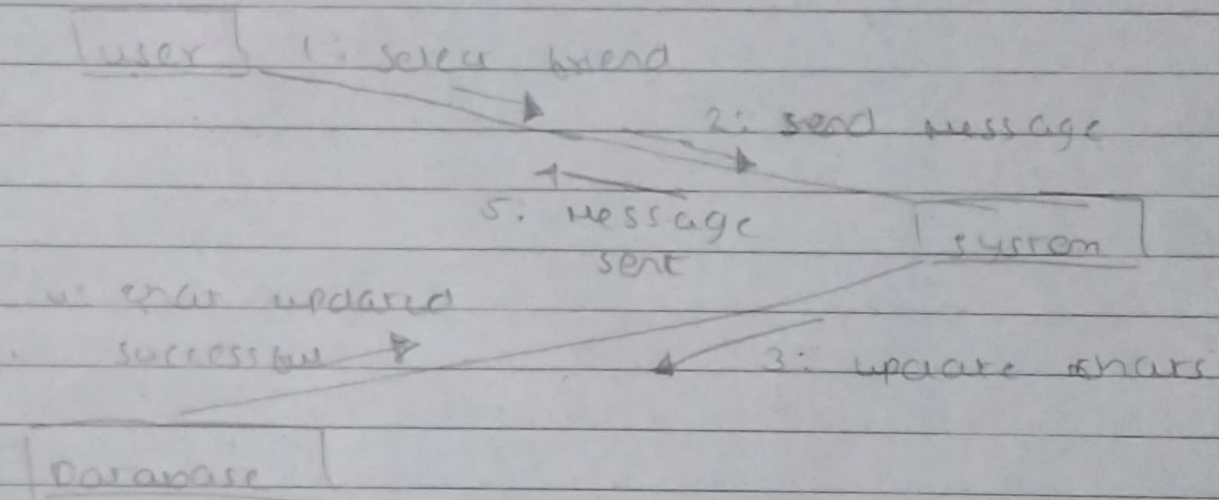 user 1: select friend
2: send message
5: Message
sent
system
4: chat updated
successful
3: update chats
Database